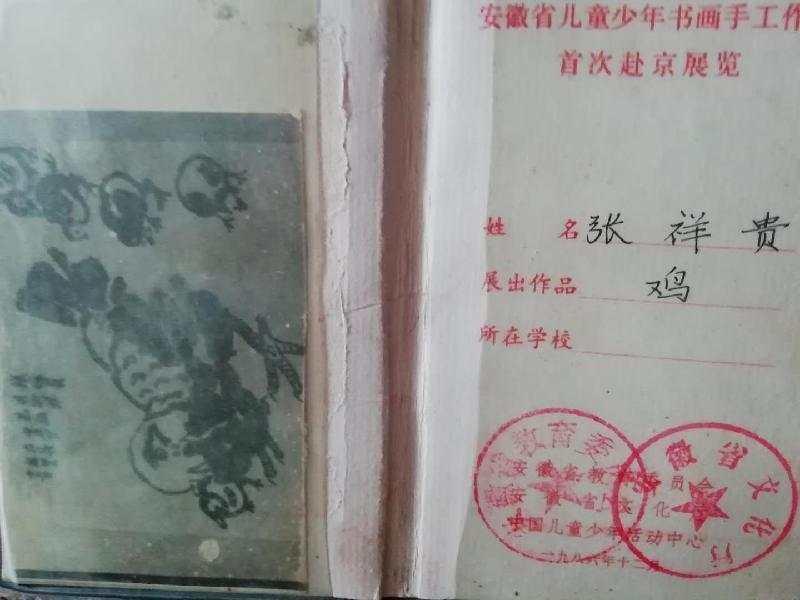 安徽省儿童少年书画手工作
首次赴京展览
姓 名 张 祥 贵
展出作品 鸡
所在学校
安徽省教育委员会
安徽省文化
中国儿童少年活动中心
一九八六年十二月
教育委
徽省文化厅